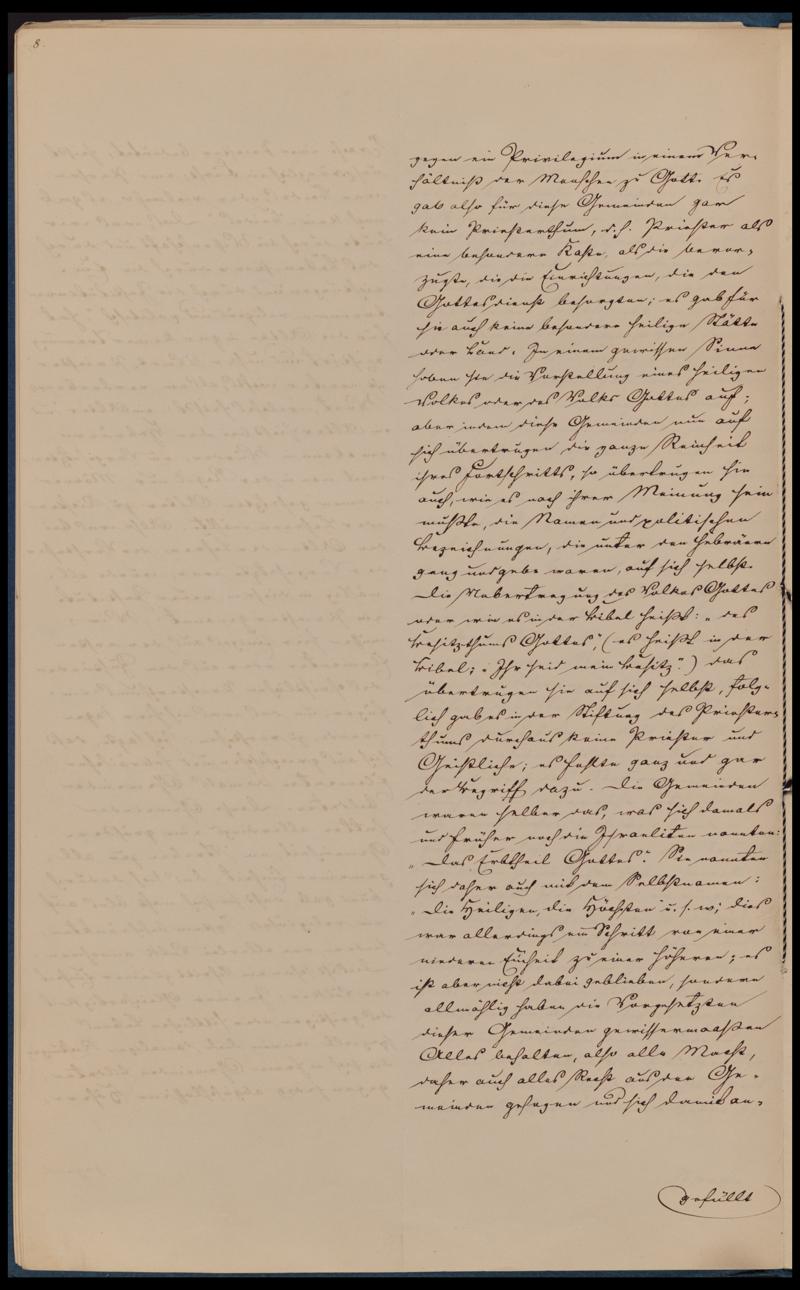 8.
gegen ein Privilegium in einem Ver-
hältniß der Menschen zu Gott. Es
gab also für diese Gemeinden gar
kein Priesterthum, d.h. Priester als
eine besondere Kaste, als die bevor-
zugte, die die Einrichtungen, die den
Gottesdienst besorgten; es gab für
sie auch keine besondere heilige Stätte
oder Land. In einem gewissen Sinne
hoben sie die Vorstellung eines heiligen
Volkes oder des Volks Gottes auf;
aber indem diese Gemeinden nun auf
sich übertrugen die ganze Reinheit
ihres Fortschritts, so übertrugen sie
auch, wie es nach ihrer Meinung sein
mußte, die Namen und politischen
Bezeichnungen, die unter den Hebräern
gang und gebe waren, auf sich selbst.
Die Uebertragung des Volkes Gottes
oder wie es in der Bibel heißt: „des
Besitzthums Gottes", (es heißt in der
Bibel: „Ihr seid mein Besitz".) das
übertrugen sie auf sich selbst, folg-
lich gab es in der Stiftung des Priester-
thums durchaus keine Priester und
Geistliche; es fehlte ganz und gar
der Begriff dazu. Die Gemeinden
waren selber das, was sich damals
und früher noch die Israeliten nannten:
„Das Erbtheil Gottes". Sie nannten
sich daher auch mit dem Selbstnamen:
„Die Heiligen, die Höchsten" u.s.w; dies
war allerdings ein Schritt von einer
niederen Einheit zu einer höheren; es
ist aber nicht dabei geblieben, sondern
allmählig haben die Vorgesetzten
dieser Gemeinden gewissermaaßen
Alles behalten, also alle Macht,
daher auch alles Recht aus den Ge-
meinden gesogen und sich damit an-
gefüllt